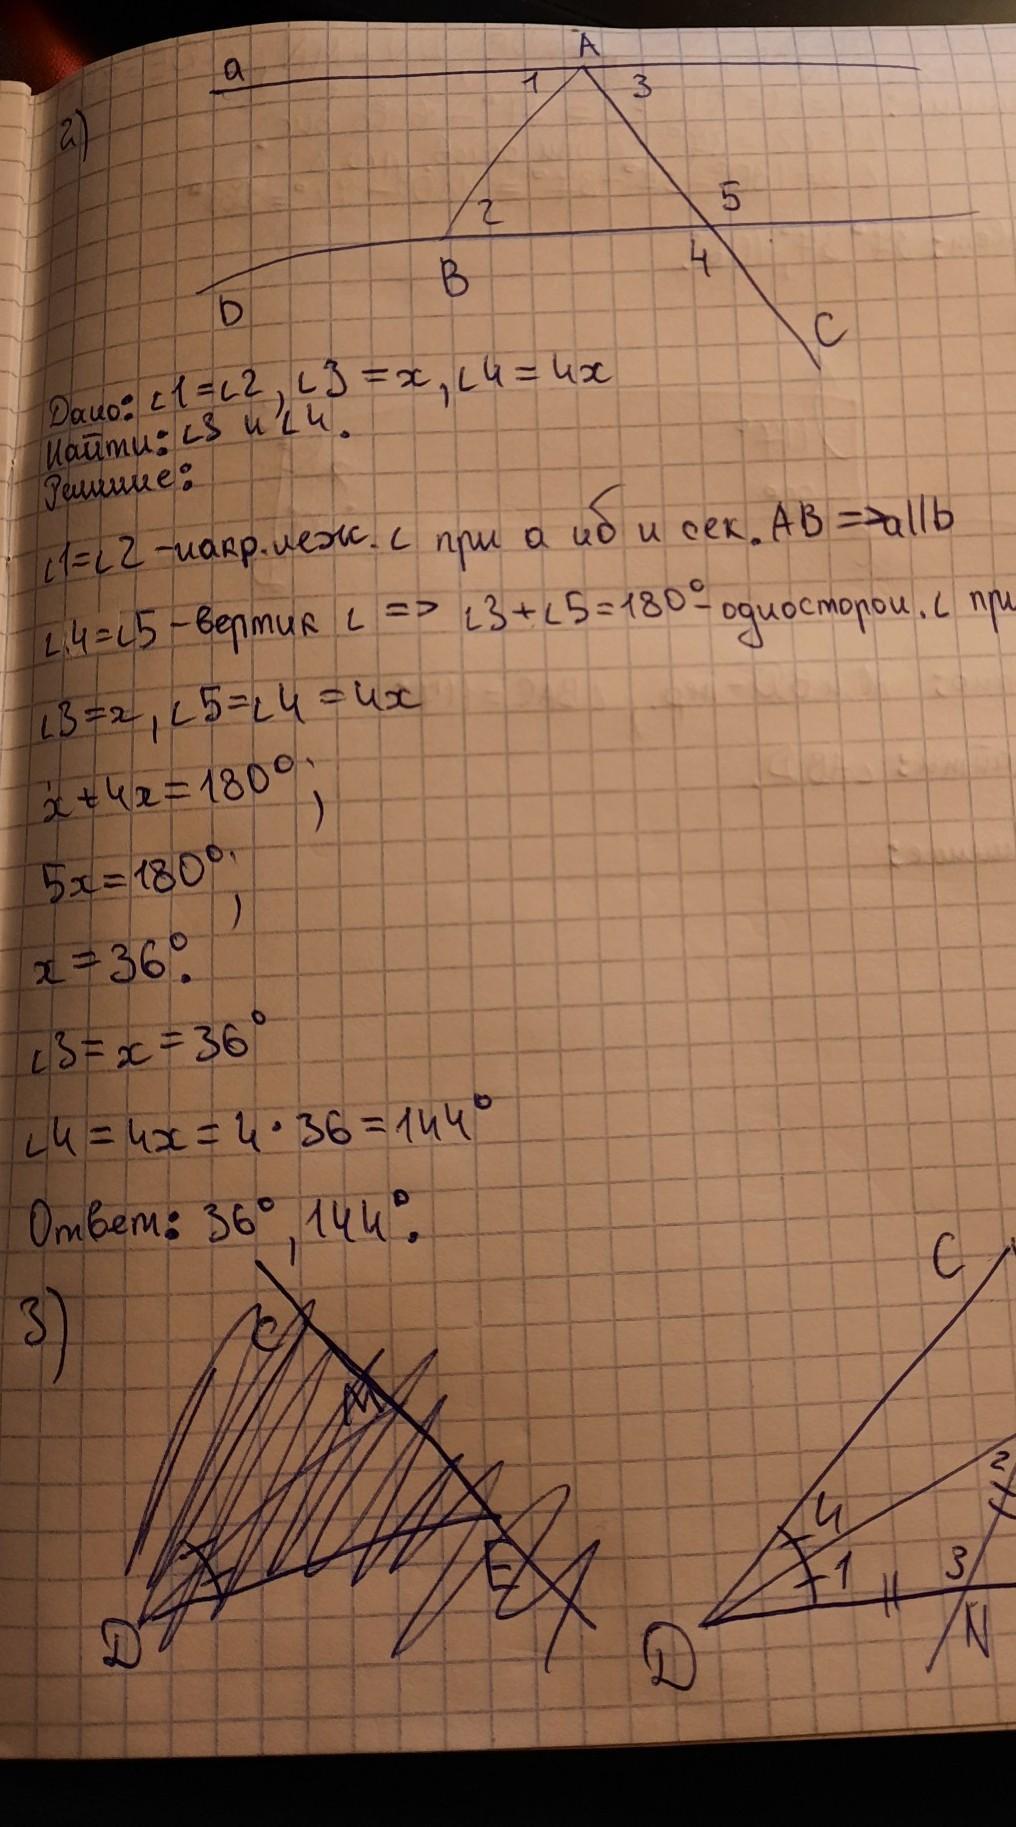 a
A
2)
1
3
2
5
4
B
D
C
Дано: ∠1=∠2, ∠3=x, ∠4=4x
Найти: ∠3 и ∠4.
Решние:
∠1=∠2 -накр.леж. ∠ при a и б и сек. AB => a||b
∠4=∠5 -вертик ∠ => ∠3+∠5=180°-односторон. ∠ при
∠3=x, ∠5=∠4=4x
x+4x=180°;
5x=180°;
x=36°.
∠3=x=36°
∠4=4x=4·36=144°
Ответ: 36°, 144°.
3)
C
M
E
D
C
4
2
1
3
D
N